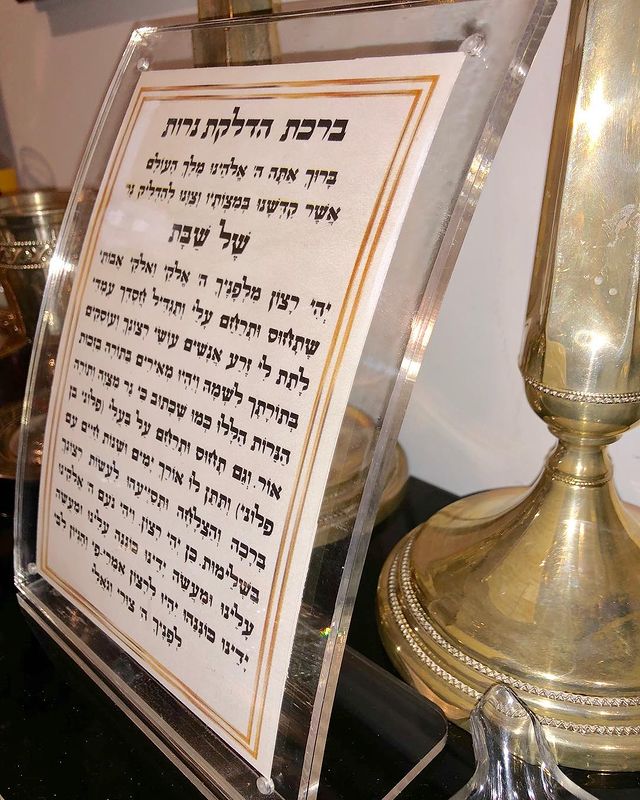 ברכת הדלקת נרות
בָּרוּךְ אַתָּה ה' אֱלֹהֵינוּ מֶלֶךְ הָעוֹלָם
אֲשֶׁר קִדְּשָׁנוּ בְּמִצְוֹתָיו וְצִוָּנוּ לְהַדְלִיק נֵר
שֶׁל שַׁבָּת
יְהִי רָצוֹן מִלְּפָנֶיךָ ה' אֱלֹקַי וֵאלֹקֵי אֲבוֹתַי
שֶׁתָּחוּס וּתְרַחֵם עָלַי וְתַגְדִּיל חַסְדְּךָ עִמָּדִי
לָתֵת לִי זֶרַע אֲנָשִׁים עוֹשֵׂי רְצוֹנֶךָ וְעוֹסְקִים
בְּתוֹרָתְךָ לִשְׁמָהּ וְיִהְיוּ מְאִירִים בַּתּוֹרָה בִּזְכוּת
הַנֵּרוֹת הַלָּלוּ כְּמוֹ שֶׁכָּתוּב כִּי נֵר מִצְוָה וְתוֹרָה
אוֹר וְגַם תָּחוּס וּתְרַחֵם עַל בַּעְלִי (פְּלוֹנִי בֶּן
פְּלוֹנִי) וְתִתֵּן לוֹ אוֹרֶךְ יָמִים וּשְׁנוֹת חַיִּים עִם
בְּרָכָה וְהַצְלָחָה וּתְסַיְּעֵהוּ לַעֲשׂוֹת רְצוֹנֶךָ
בִּשְׁלֵימוּת כֵּן יְהִי רָצוֹן וִיהִי נֹעַם ה' אֱלֹקֵינוּ
עָלֵינוּ וּמַעֲשֵׂה יָדֵינוּ כּוֹנְנָה עָלֵינוּ וּמַעֲשֵׂה
יָדֵינוּ כּוֹנְנֵהוּ יִהְיוּ לְרָצוֹן אִמְרֵי פִי וְהֶגְיוֹן לִבִּי
לְפָנֶיךָ ה' צוּרִי וְגֹאֲלִי